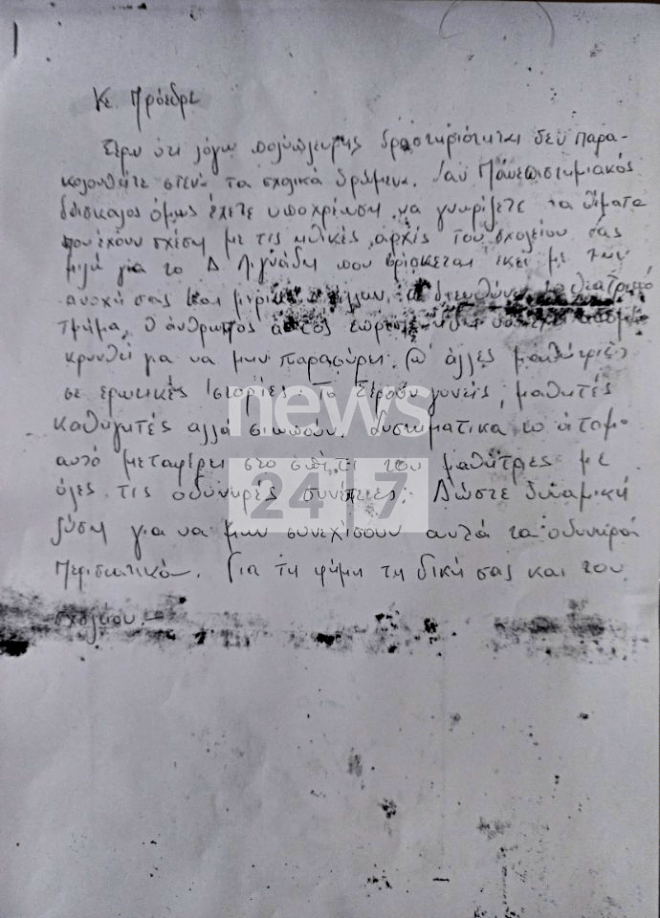 Κε Πρόεδρε
Ξέρω ότι λόγω πολύπλευρης δραστηριότητας δεν παρα-
κολουθείτε στενά τα σχολικά δρώμενα. Σαν Πανεπιστημιακός
δάσκαλος όμως έχετε υποχρέωση να γνωρίζετε τα θέματα
που έχουν σχέση με τις ηθικές αρχές του σχολείου σας
μιλώ για το Δ. Λιγνάδη που βρίσκεται εκεί με την
ανοχή σας και διευθύνει το θεατρικό
τμήμα. Ο άνθρωπος αυτός
κρυνθεί για να μην παρασύρει άλλες μαθήτριες
σε ερωτικές ιστορίες. Το ξέρουν γονείς, μαθητές
καθηγητές αλλά σιωπούν. Συστηματικά το άτομο
αυτό μεταφέρει στο σπίτι του μαθήτρες με
όλες τις οδυνηρές συνέπειες. Δώστε δυναμική
λύση για να μην συνεχίσουν αυτά τα οδυνηρά
περιστατικά. Για τη φήμη τη δική σας και του
σχολείου.-
news
24 7